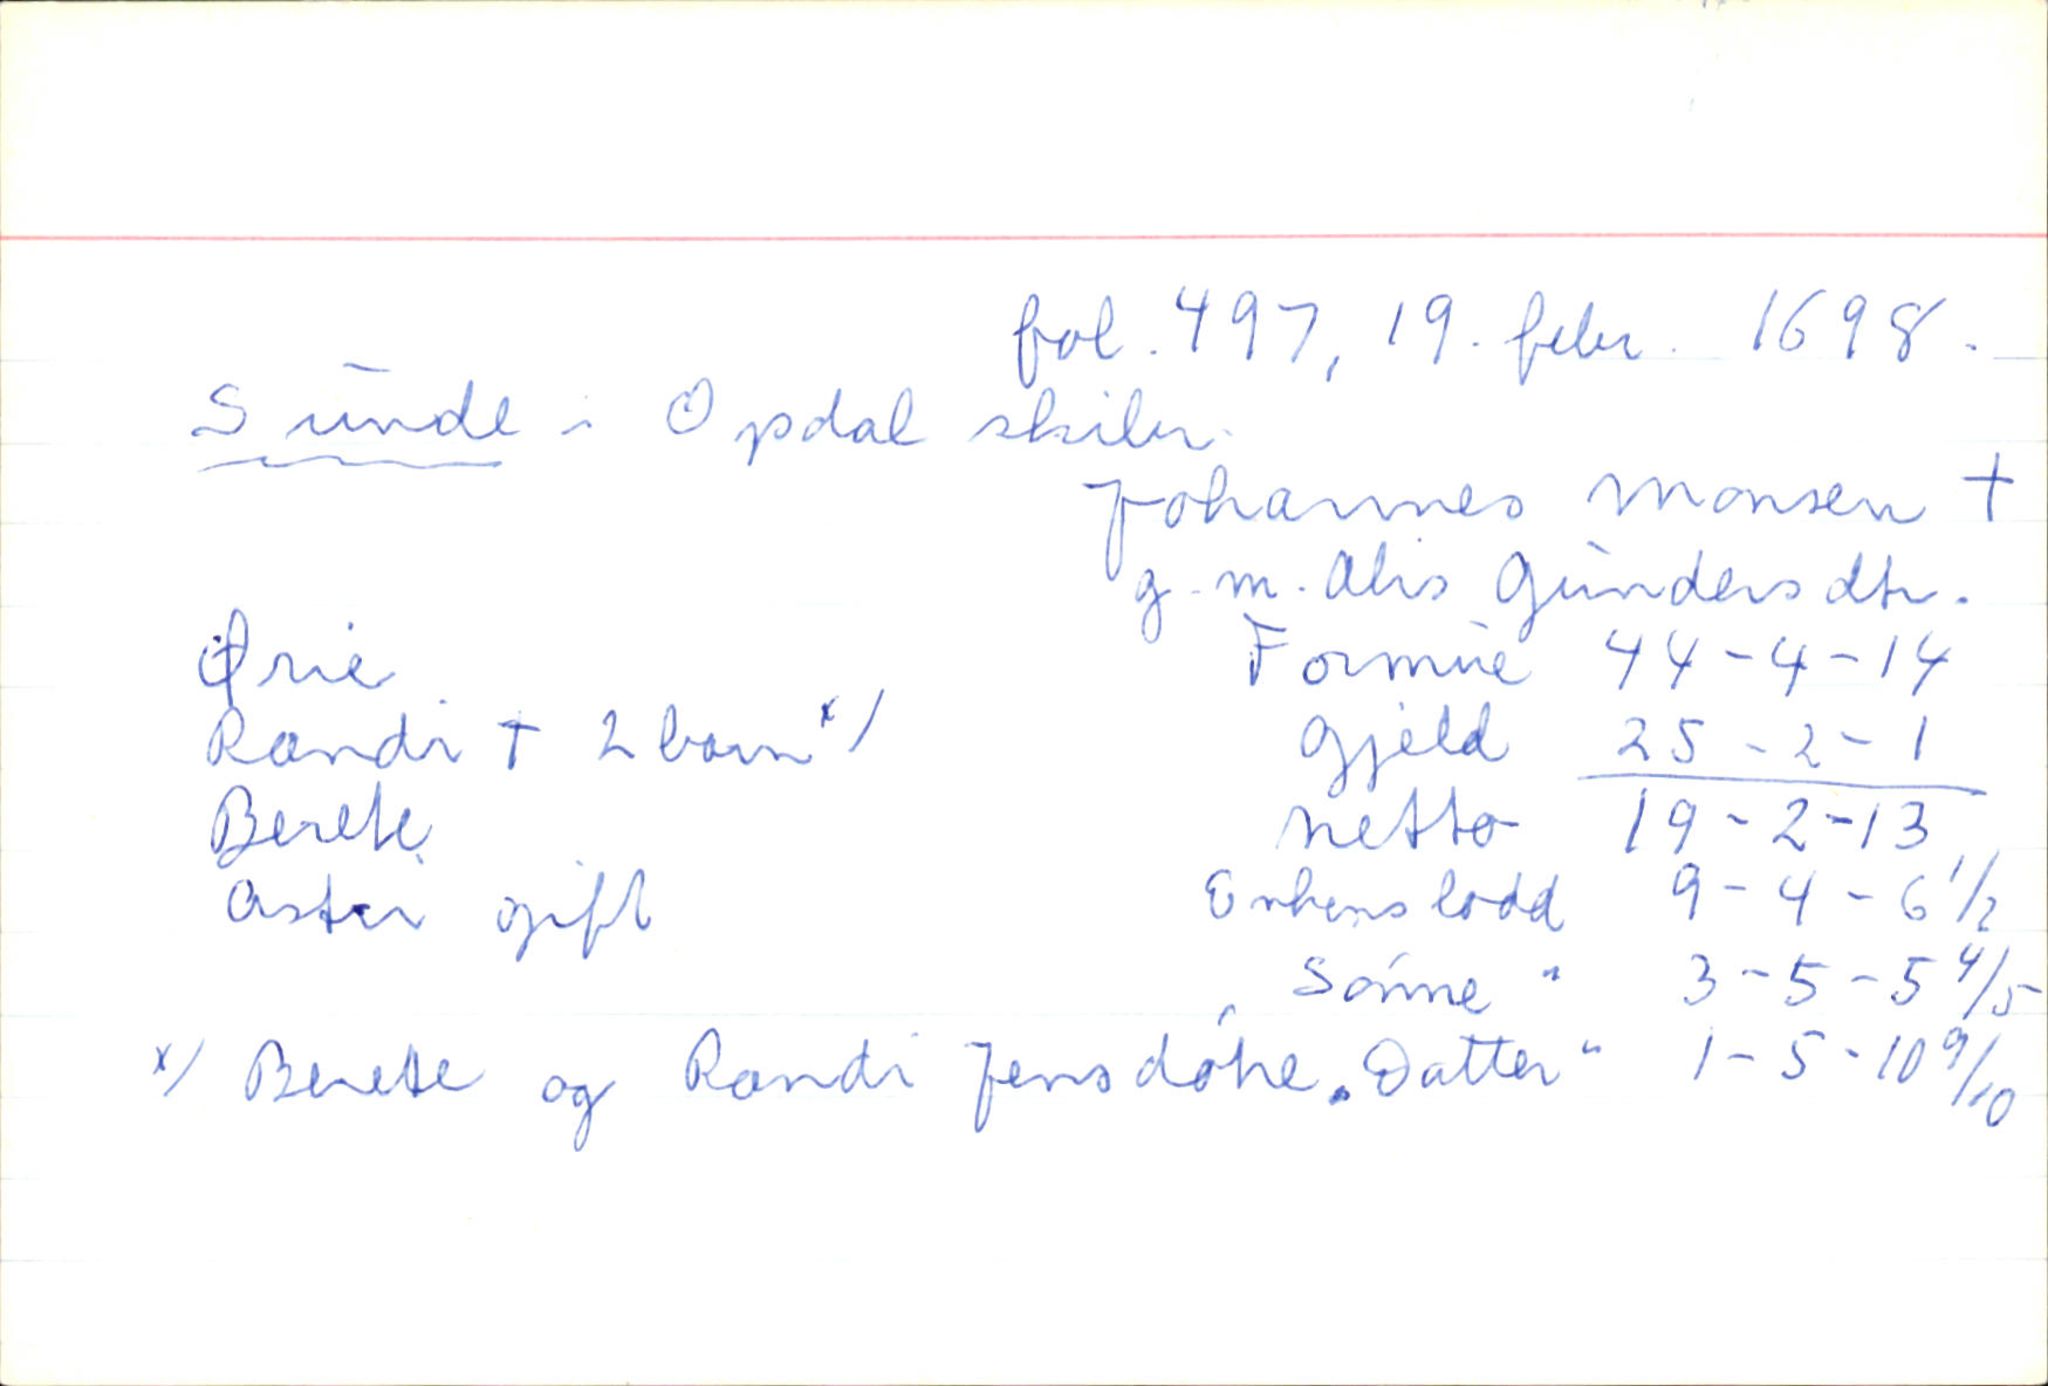 fol. 497, 19. febr. 1698.
Sunde i Opdal skibr.
Johannes Monsen †
g.m. Alis Gundersdtr.
Ørie Formue 44-4-14
Randi † 2 barn x/ Gjeld 25-2-1
Berete netto 19-2-13
Astri gift Enkens lodd 9-4-6 1/2
Sønne " 3-5-5 4/5
x/ Berete og Randi Jensdøtre. Datter " 1-5-10 9/10